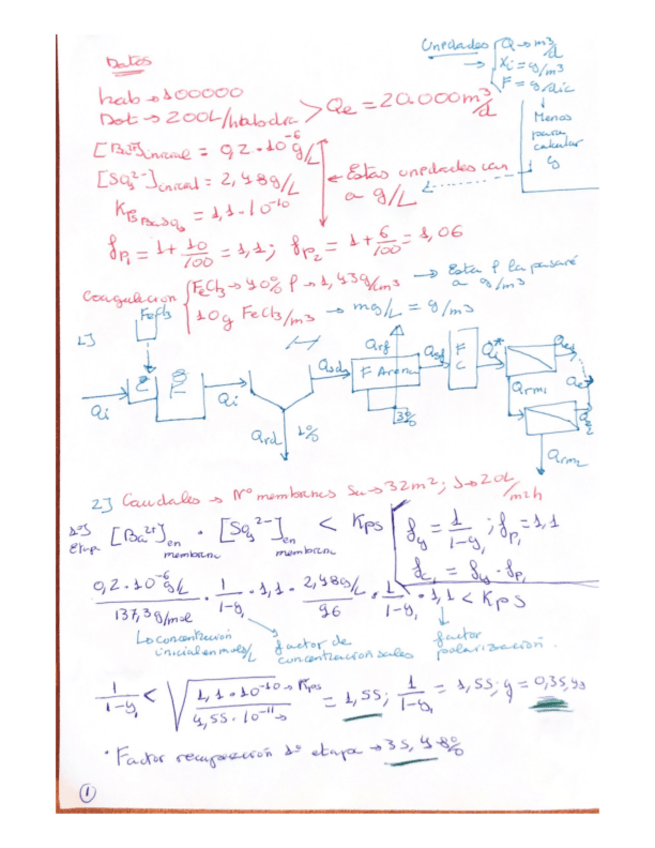 Datos
Unidades { Q → m³/d
→ Xi = g/m³
F = g/día
↓
Menos para calcular y
hab → 100000
Dot → 200L/hab·dia > Qe = 20.000 m³/d
[Ba²⁺]inicial = 0,2·10⁻⁶ g/L
[SO₄²⁻]inicial = 2,48g/L ← Estas unidades van a g/L
Kps BaSO₄ = 1,1·10⁻¹⁰
fp₁ = 1 + 10/100 = 1,1; fp₂ = 1 + 6/100 = 1,06
Coagulacion { FeCl₃ → 40% ρ → 1,43g/cm³ → Esta ρ la pasaré a g/m³
10g FeCl₃/m³ → mg/L = g/m³
1]
FeCl₃
Qi Qi Qrd 1% Qsd F Arena Qrf 3% Qsf F C Qi* Qrm₁ Qe₁ Qe Qe₂ Qrm₂
2] Caudales → Nº membranas Su → 32m²; J → 20L/m²h
1º] Etapa [Ba²⁺]en membrana · [SO₄²⁻]en membrana < Kps
fy = 1/1-y₁; fp₁ = 1,1
fc₁ = fy · fp₁
0,2·10⁻⁶g/L / 137,3g/mol · 1/1-y₁ · 1,1 · 2,48g/L / 96 · 1/1-y₁ · 1,1 < Kps
↳ concentración inicial en mols/L
factor de concentracion sales
factor polarización.
1/1-y₁ < √ 1,1·10⁻¹⁰ → Kps / 4,55·10⁻¹¹ = 1,55; 1/1-y₁ = 1,55; y = 0,35,49
· Factor recuperación 1º etapa → 35,48%
1